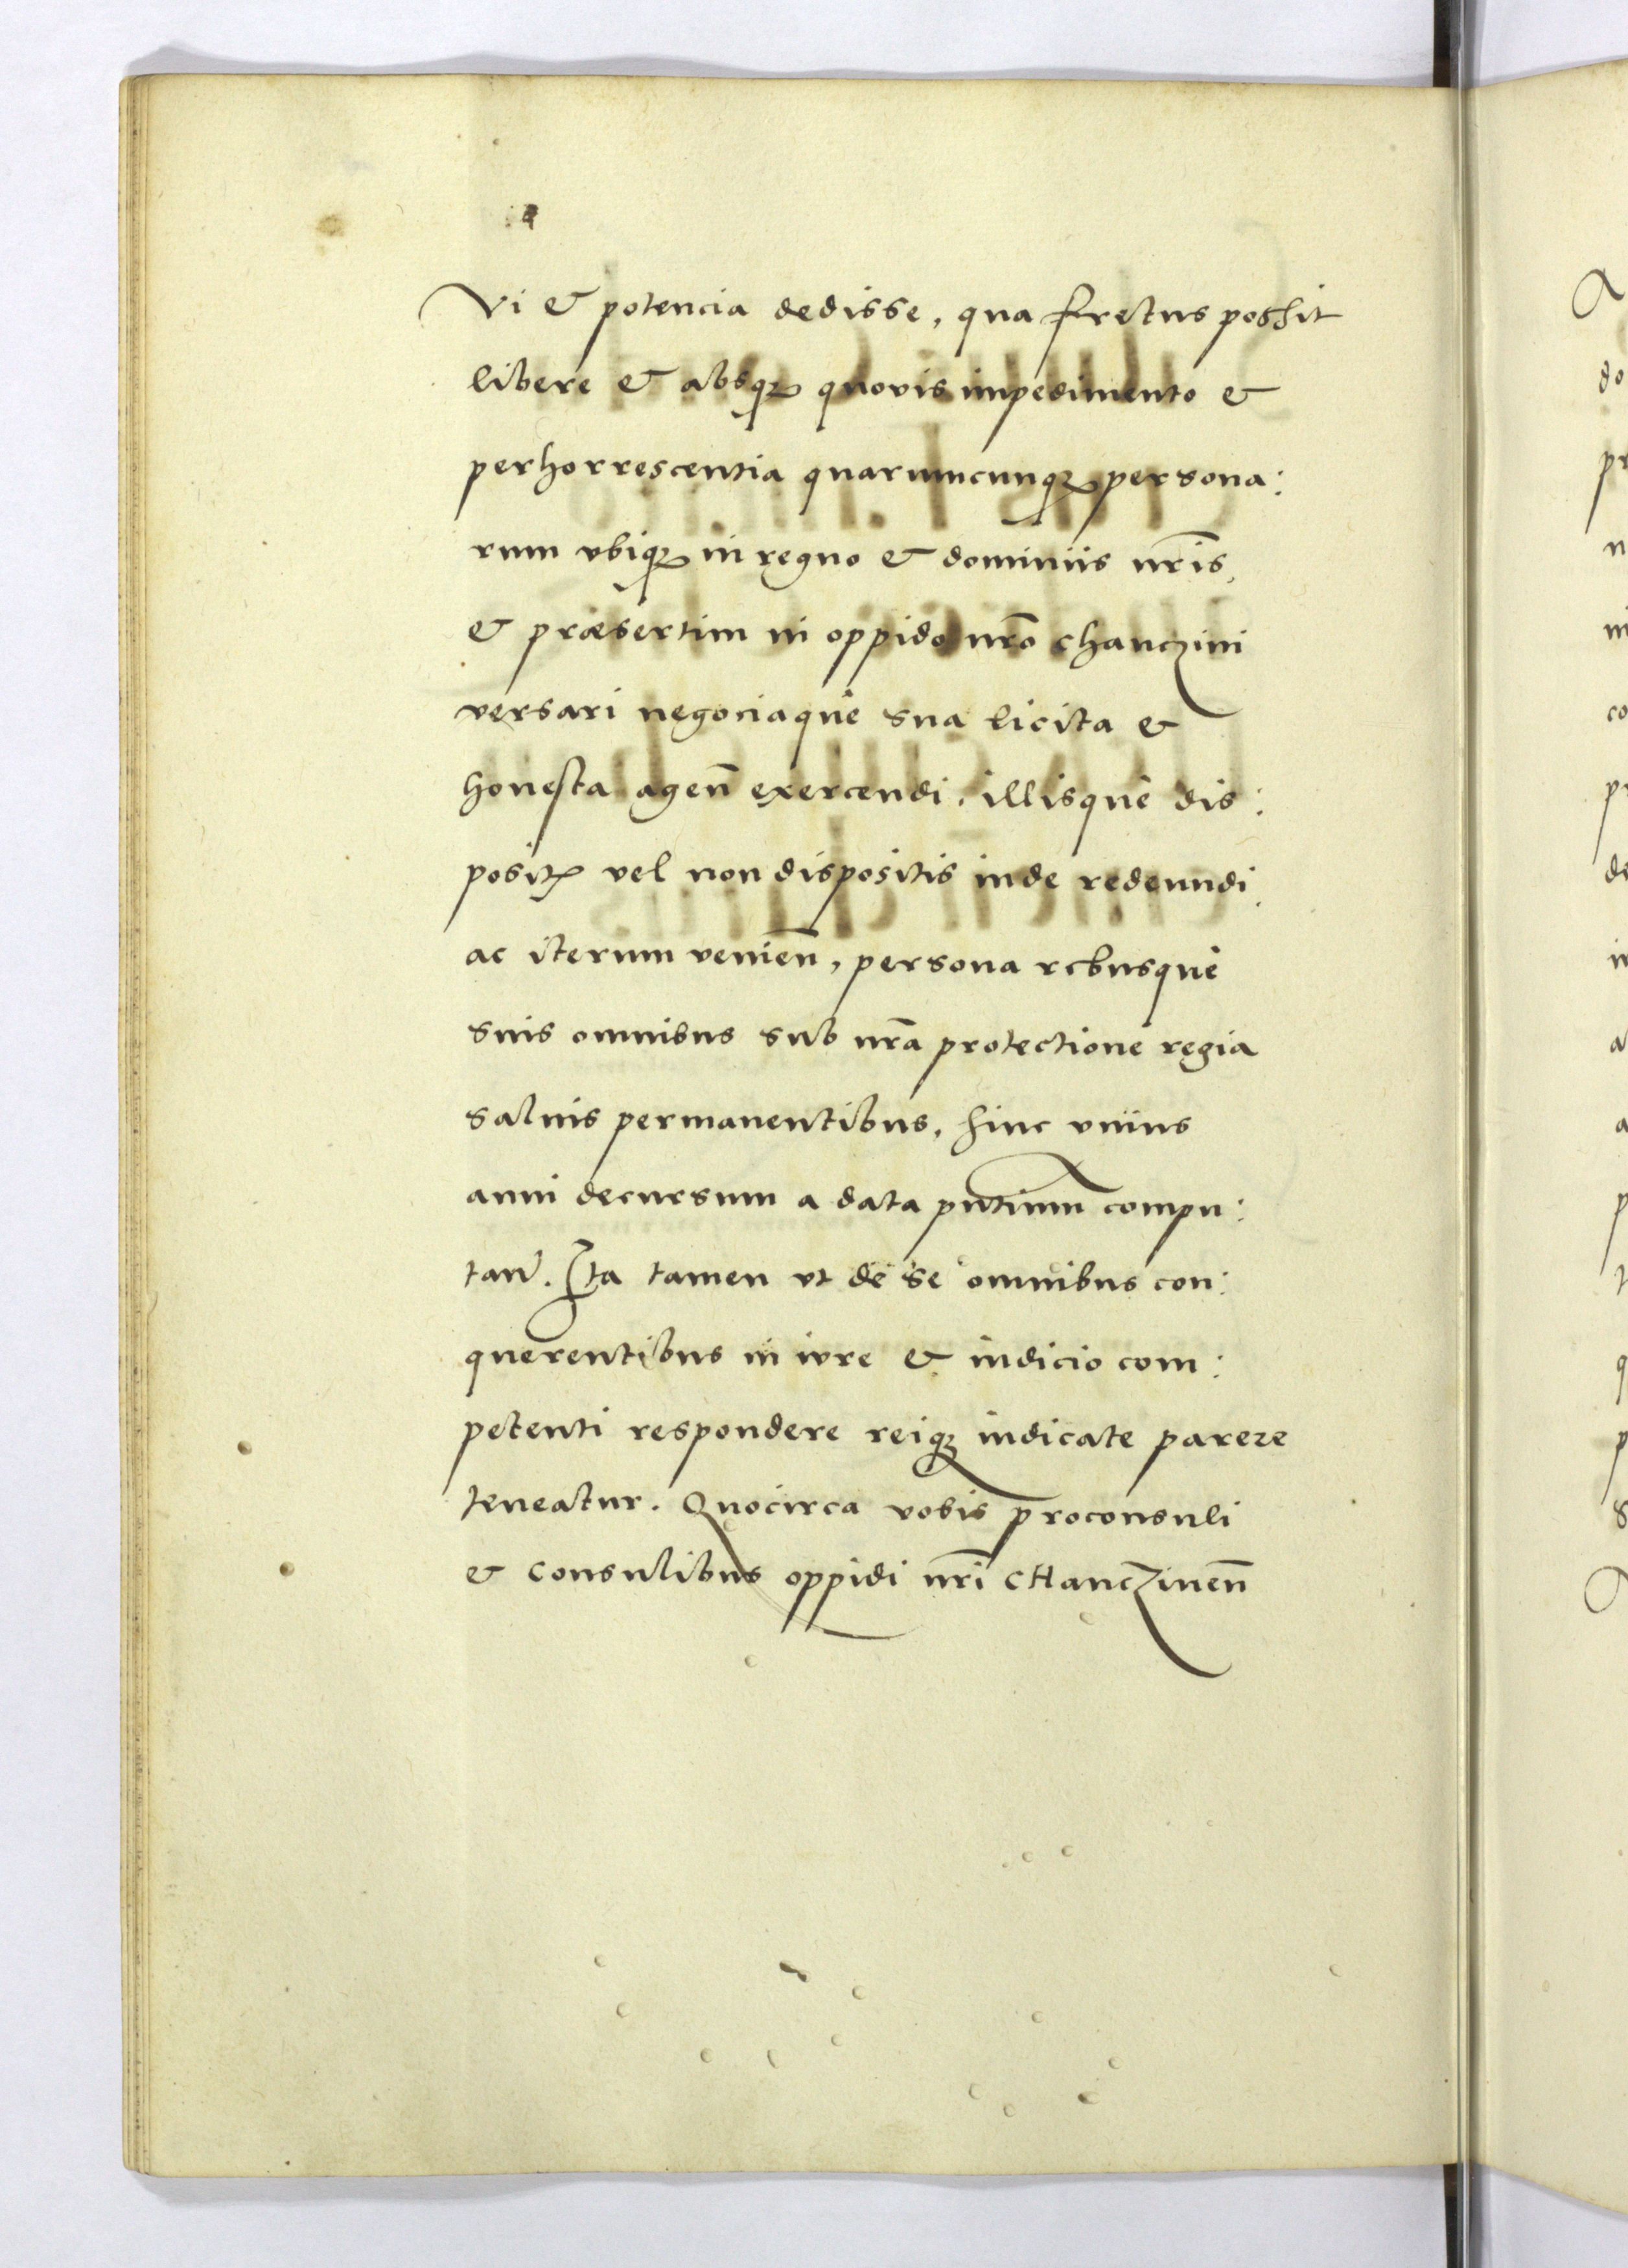 Vi & potencia dedisse, qua fretus possit
libere & absq; quovis impedimento &
perhorrescentia quarumcunq; persona:
rum vbiq; in regno & dominiis nr̃is,
& præsertim in oppido nr̃o chanczini
versari negociaque sua licita &
honesta ageñ exercendi, illisque dis:
positꝭ vel non dispositis inde redeundi,
ac iterum venieñ, persona rebusque
suis omnibus sub nr̃a protectione regia
saluis permanentibus, hinc vnius
anni decursum a data pñtium compu:
tañ. Ita tamen vt de se omnibus con:
querentibus in iure & iudicio com:
petenti respondere reiq; iudicate parere
teneatur. Quocirca vobis proconsuli
& consulibus oppidi nr̃i cHanczineñ